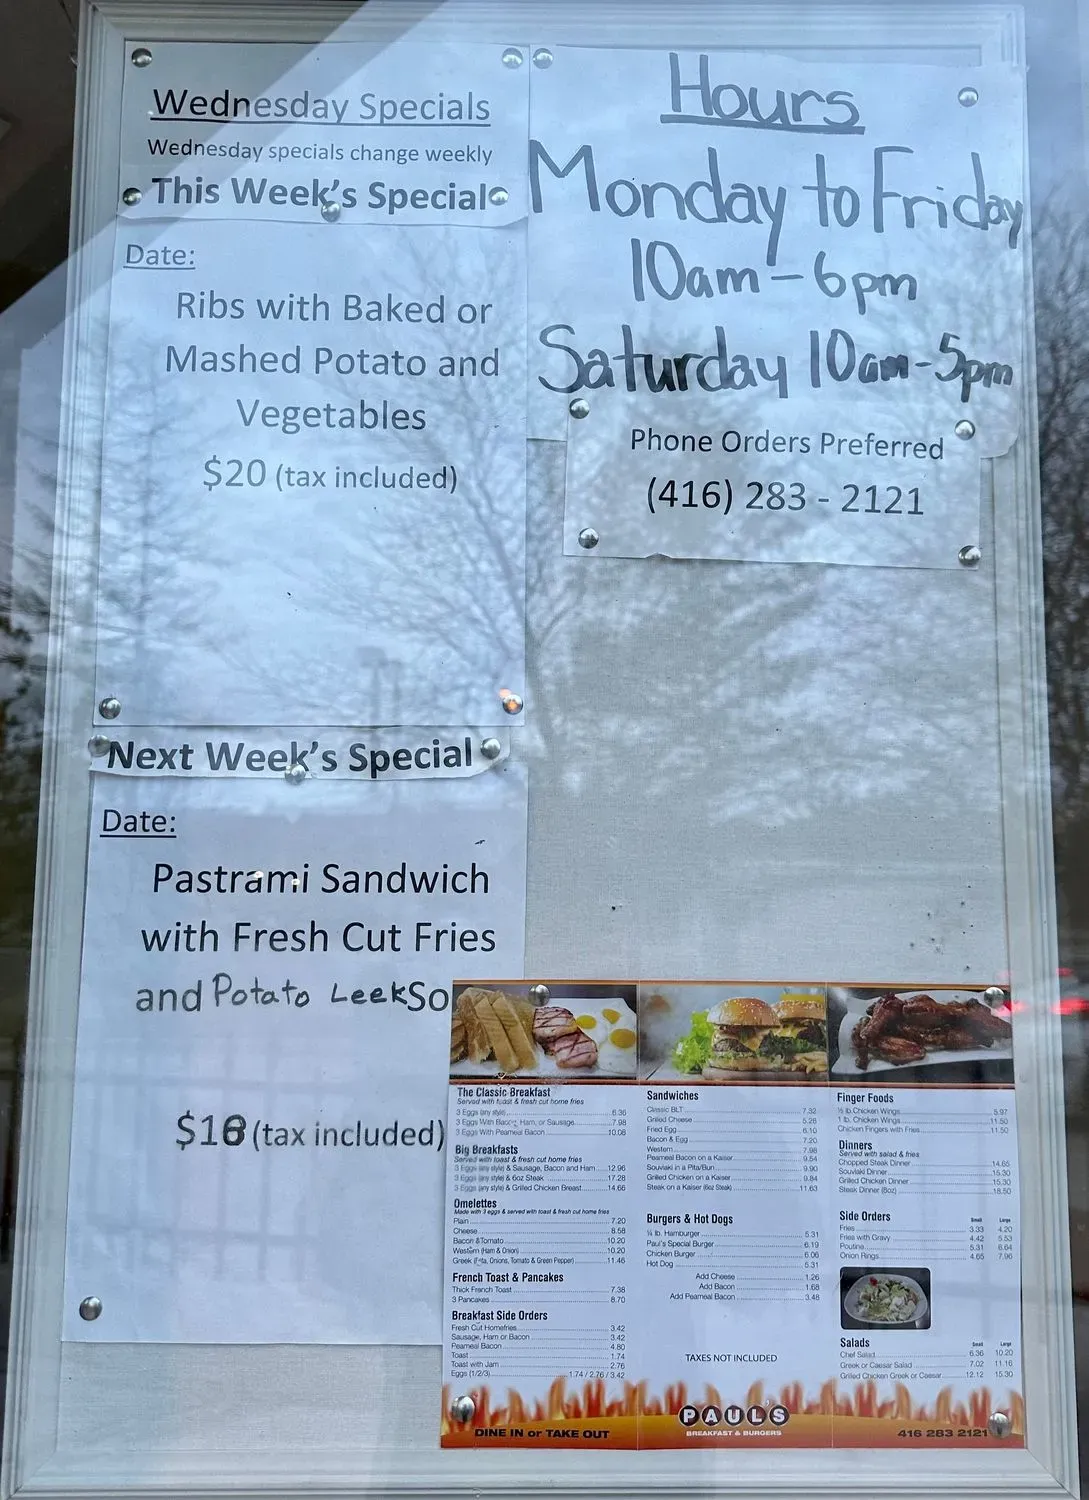 Wednesday Specials
Wednesday specials change weekly
This Week's Special
Date:
Ribs with Baked or
Mashed Potato and
Vegetables
$20 (tax included)
Next Week's Special
Date:
Pastrami Sandwich
with Fresh Cut Fries
and Potato Leek So
(tax included)
Hours
Monday to Friday
10am - 6pm
Saturday 10am - 5pm
Phone Orders Preferred
(416) 283 - 2121
The Classic Breakfast
Served with toast & fresh cut home fries
3 Eggs (any style) 6.36
3 Eggs With Bacon, Ham, or Sausage 7.98
3 Eggs With Peameal Bacon 10.08
Big Breakfasts
Served with toast & fresh cut home fries
3 Eggs (any style) & Sausage, Bacon and Ham 12.96
3 Eggs (any style) & 6oz Steak 17.28
3 Eggs (any style) & Grilled Chicken Breast 14.66
Omelettes
Made with 3 eggs & served with toast & fresh cut home fries
Plain 7.20
Cheese 8.58
Bacon & Tomato 10.20
Western (Ham & Onion) 10.20
Greek (Feta, Onions, Tomato & Green Pepper) 11.46
French Toast & Pancakes
Thick French Toast 7.38
3 Pancakes 8.70
Breakfast Side Orders
Fresh Cut Homefries 3.42
Sausage, Ham or Bacon 3.42
Peameal Bacon 4.80
Toast 1.74
Toast with Jam 2.76
Eggs (1/2/3) 1.74 / 2.76 / 3.42
Sandwiches
Classic BLT 7.32
Grilled Cheese 5.28
Fried Egg 6.10
Bacon & Egg 7.20
Western 7.98
Peameal Bacon on a Kaiser 9.54
Souvlaki in a Pita/Bun 9.90
Grilled Chicken on a Kaiser 9.84
Steak on a Kaiser (6oz Steak) 11.63
Burgers & Hot Dogs
¼ lb. Hamburger 5.31
Paul's Special Burger 6.19
Chicken Burger 6.06
Hot Dog 5.31
Add Cheese 1.26
Add Bacon 1.68
Add Peameal Bacon 3.48
TAXES NOT INCLUDED
Finger Foods
½ lb. Chicken Wings 5.97
1 lb. Chicken Wings 11.50
Chicken Fingers with Fries 11.50
Dinners
Served with salad & fries
Chopped Steak Dinner 14.65
Souvlaki Dinner 15.30
Grilled Chicken Dinner 15.30
Steak Dinner (8oz) 18.50
Side Orders Small Large
Fries 3.33 4.20
Fries with Gravy 4.42 5.53
Poutine 5.31 6.64
Onion Rings 4.65 7.96
Salads Small Large
Chef Salad 6.36 10.20
Greek or Caesar Salad 7.02 11.16
Grilled Chicken Greek or Caesar 12.12 15.30
DINE IN or TAKE OUT
PAUL'S
BREAKFAST & BURGERS
416 283 2121